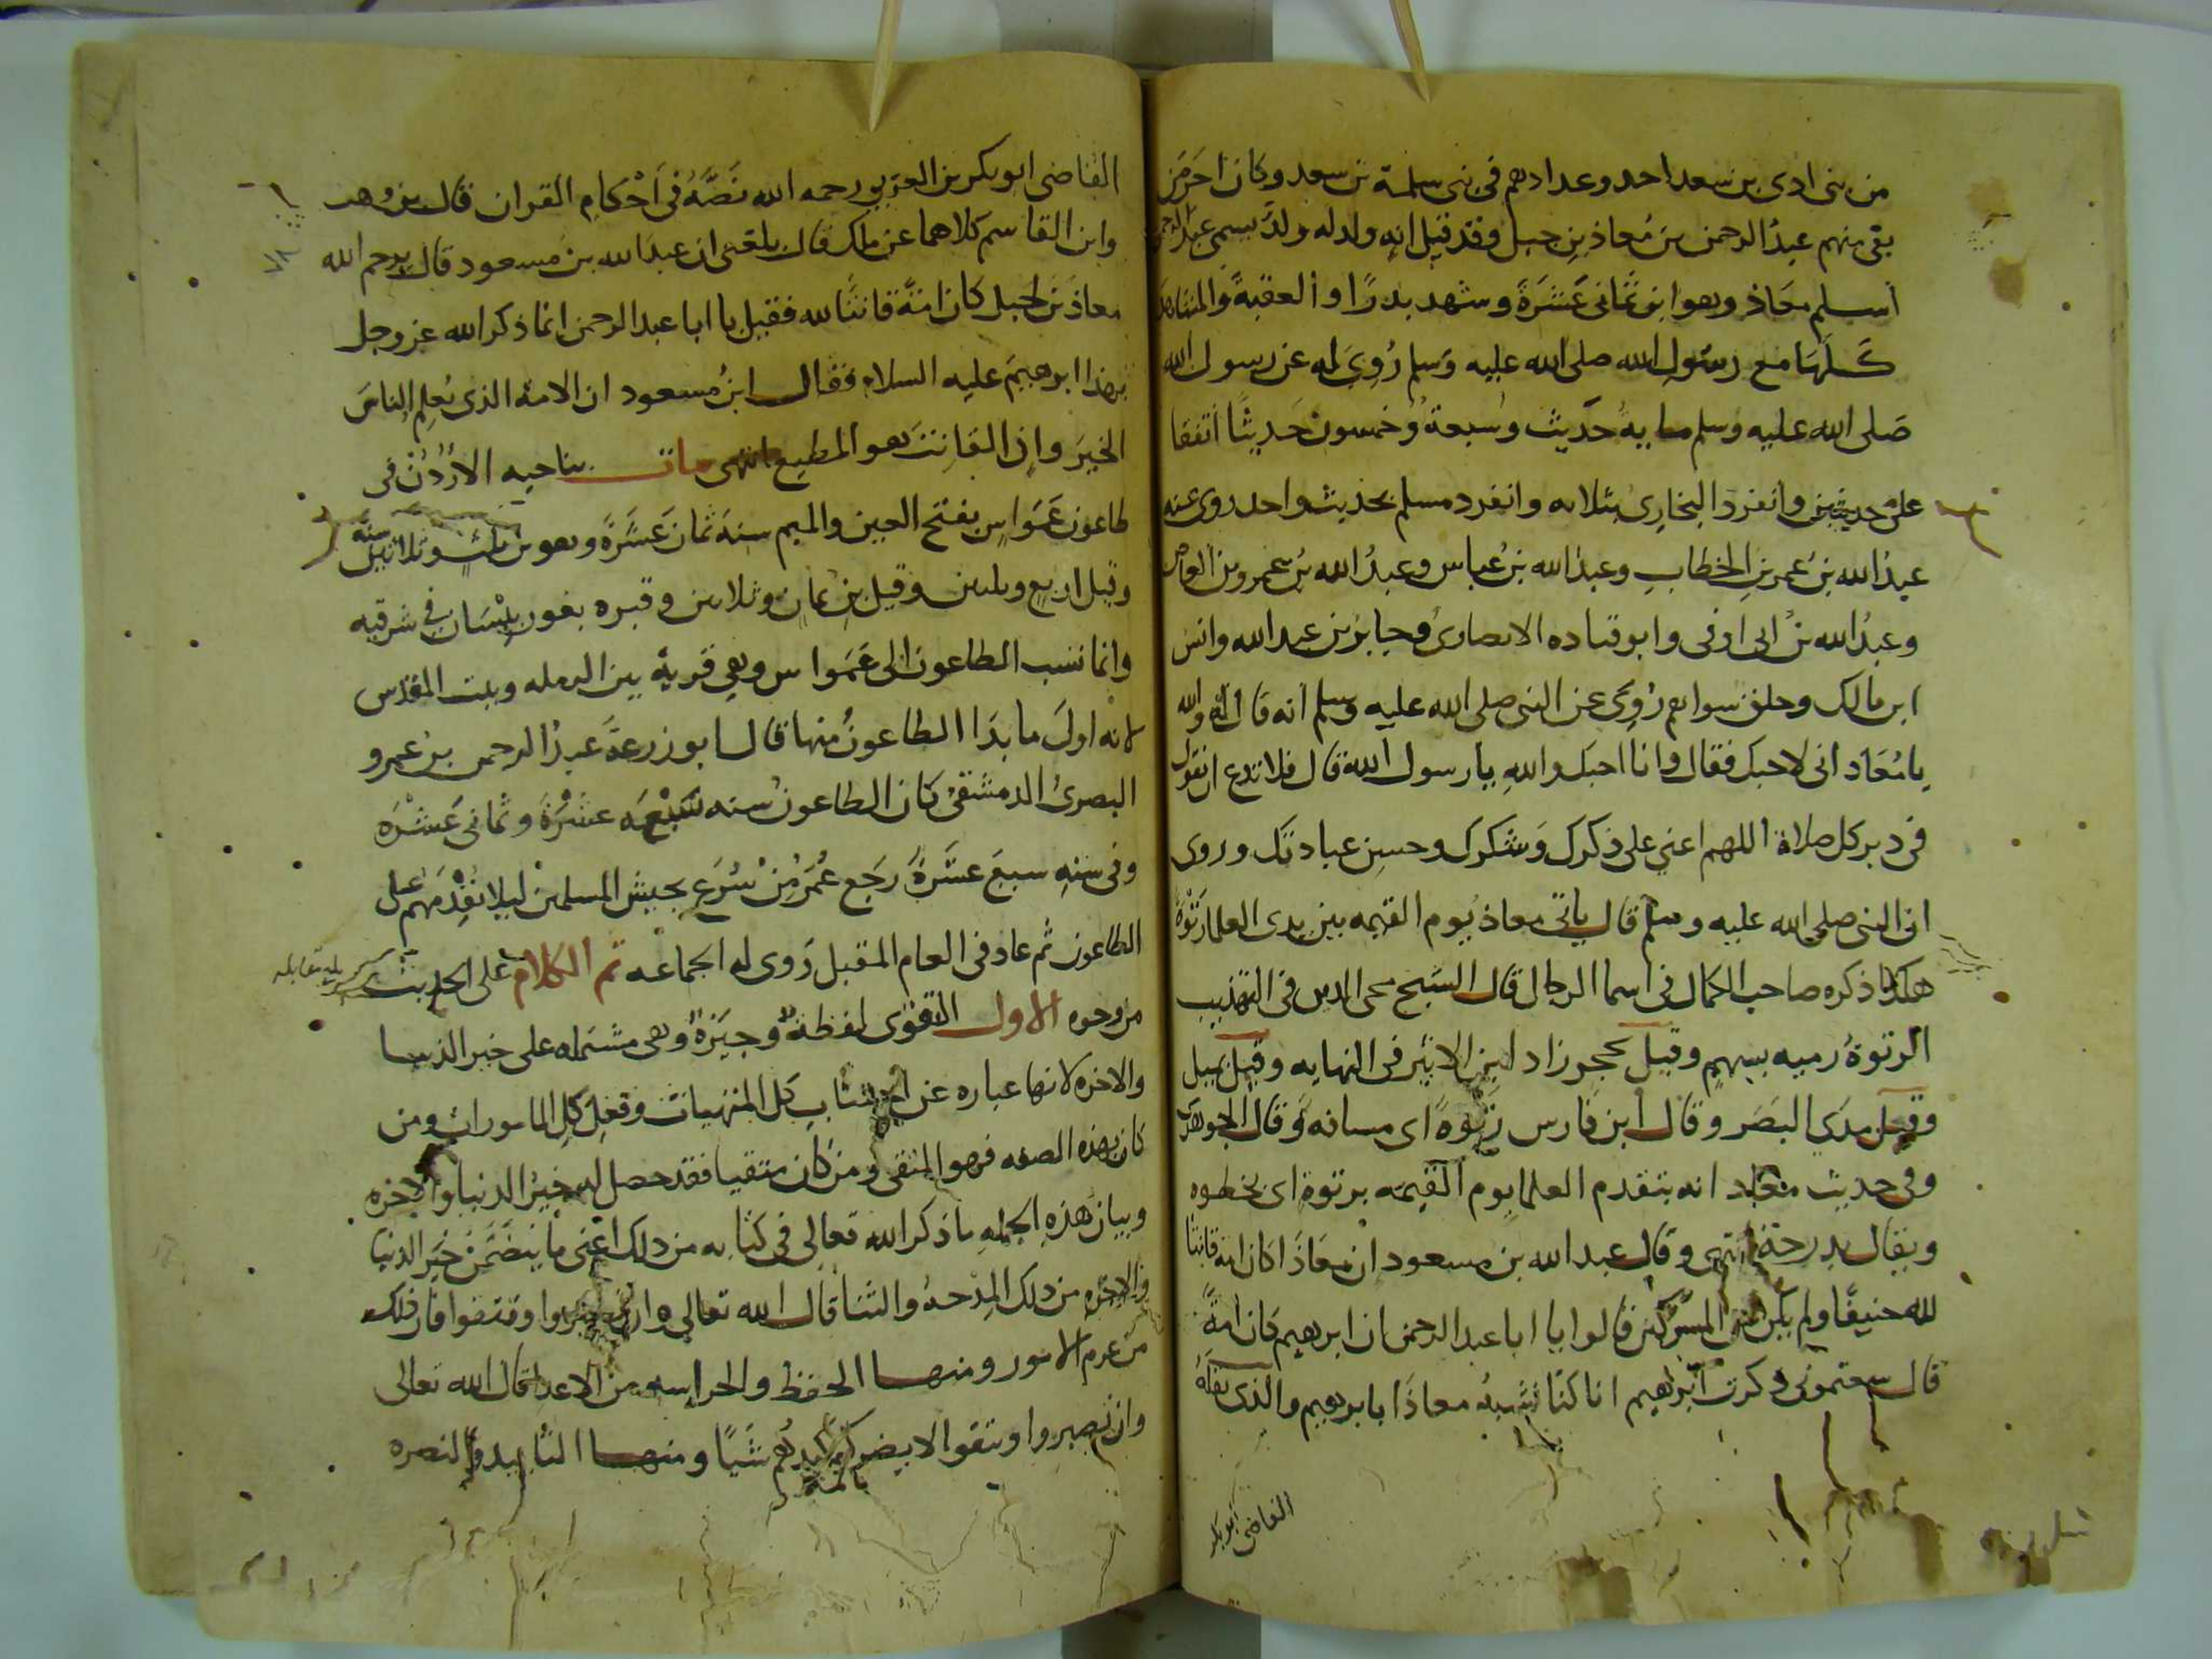 من بنى ادى بن سعد احد وعدادهم فى بنى سلمة بن سعد وكان اخر من
بقى منهم عبدُ الرحمن بن مُعاذ بنِ جبل وقد قيل انه ولد له ولدٌ يسمى عبدَ الرحمن
أسلم معَاذ وهو ابن ثمانى عَشَرَةَ وشهد بدرًا والعقبةَ والمشاهد
كلَّهَا مع رسُولِ الله صلى الله عليه وسَلم رُوىَ له عن رسول الله
صَلى الله عليه وسلم مايةُ حَديث وسَبعةٌ وخمسون حَديثًا أتفقا
على حديثين وانفردَ البخارِى بثلاثه وانفرد مسلم بحديث واحد روى عنه
عبدُ الله بنُ عمر بنِ الخطابِ وعبدُ الله بنُ عباس وعبدُ الله بنُ عمرو بن العاص
وعبدُ الله بنُ ابى اوفى وابو قتاده الانصارىُ وجابرُ بن عبد الله وانس
ابن مالك وخلق سواهم رُوِىَ عن النبى صلى الله عليه وسلم أنه قال له والله
يا مُعَاد انى لاحبك فقال وانا احبك واللهِ يا رسول الله قال فلا تدع ان تقول
فى دبر كل صلاة اللهم اعني على ذكرك وَشكرك وحسنِ عبادتك وروى
ان النبى صلى الله عليه وسلم قال ياتى معاذ يوم القيمه بين يدى العلما رَتْوَةً
هكذا ذكره صاحب الكمال فى اسما الرجال قال الشيخ محى الدين فى التهذيب
الرتوةُ رميه بسهمٍ وقيل بحجر زاد ابن الاثير فى النهايه وقيل بميل
وقيل مدَى البَصَر وقال أبن فارس رَتْوَةً اى مسافه وَقال الجوهرى
وفى حديث معاد انه يتقدم العلما يوم القيمَه برتوةٍ اى بخطوه
ويقال بدرجة أنتهى وقال عبد الله بن مسعود ان معَاذَا كان امة قانتا
لله حنيفًا ولم يكُ من المشركين قالوا يا ابا عبد الرحمن ان ابرهيم كان امةً
قال سمعتمونى ذكرت ابراهيم انا كنا نشبهُ معاذَا بابرهيم والذى نقلَهُ
القاضى ابو بكر
القاضى ابو بكر بن العربى رحمه الله نَصَّهُ فى أحْكام القران قال بن وهب
وابن القاسم كلاهما عن ملك قال بلغنى ان عبدَ الله بن مسعود قال يرحم الله
معاذَ بن جبل كان امةً قانتًا لله فقيل يا ابا عبد الرحمن انما ذكر الله عز وجل
بهذا ابرهيمَ عليه السلام فقال ابنُ مسعود ان الامة الذى يُعلِم الناسَ
الخيرَ وان القانتَ هو المطيع انتهى مات بناحيه الاُرْدُنْ فى
طاعون عَمَوَاس بفتح العين والميم سنةَ ثمانَ عَشَرَةَ وهو بن ثلث وثلاثين سنة
وقيل اربع وثلثين وقيل بن ثمان وثلاثين وقبره بغور بَيْسَان فى شرقيه
وانما نسب الطاعون الى عَمَوَاس وهى قرية بين الرمله وبيت المقدس
لانه اولَ ما بدَا الطاعونُ منها قال ابو زرعةَ عبدُ الرحمن بن عمرو
البصرىُ الدمشقىُ كان الطاعونُ سنه سَبْعَه عشْرَةَ وثمانى عَشْرَه
وفى سنهِ سبعَ عشَرَةَ رَجَع عُمَرُ مِنْ سَرْعِ بجيش المسلمين ليلا يُقْدِمَهُم على
الطاعون ثم عاد فى العام المقبل رَوى له الجماعه تم الكلام على الحديث
بلغ مقابله
من وجوه الاول التقوى لفظةٌ وجيزةٌ وهى مشتمله على خير الدنيا
والاخره لانها عباره عن اجتنابِ كل المنهيات وفعلِ كلِ المامورات ومن
كان بهذه الصفه فهو المتقى ومن كان متقيا فقد حصل له خيرُ الدنيا والاخره
وبيان هَذهِ الجملهِ ما ذكر الله تعالى فى كتابه من ذلك اعْنى ما يتضَمَّنُ خَير الدنيا
والاخره من ذلك المِدْحهُ والثنا قال الله تعالى وان تصبروا وتتقوا فان ذلك
من عزم الامور ومنها الحفظ والحراسه من الاعدا قال الله تعالى
وان تصبروا وتتقوا لا يضركم كيدهُم شيًا ومنها التاييد والنصره